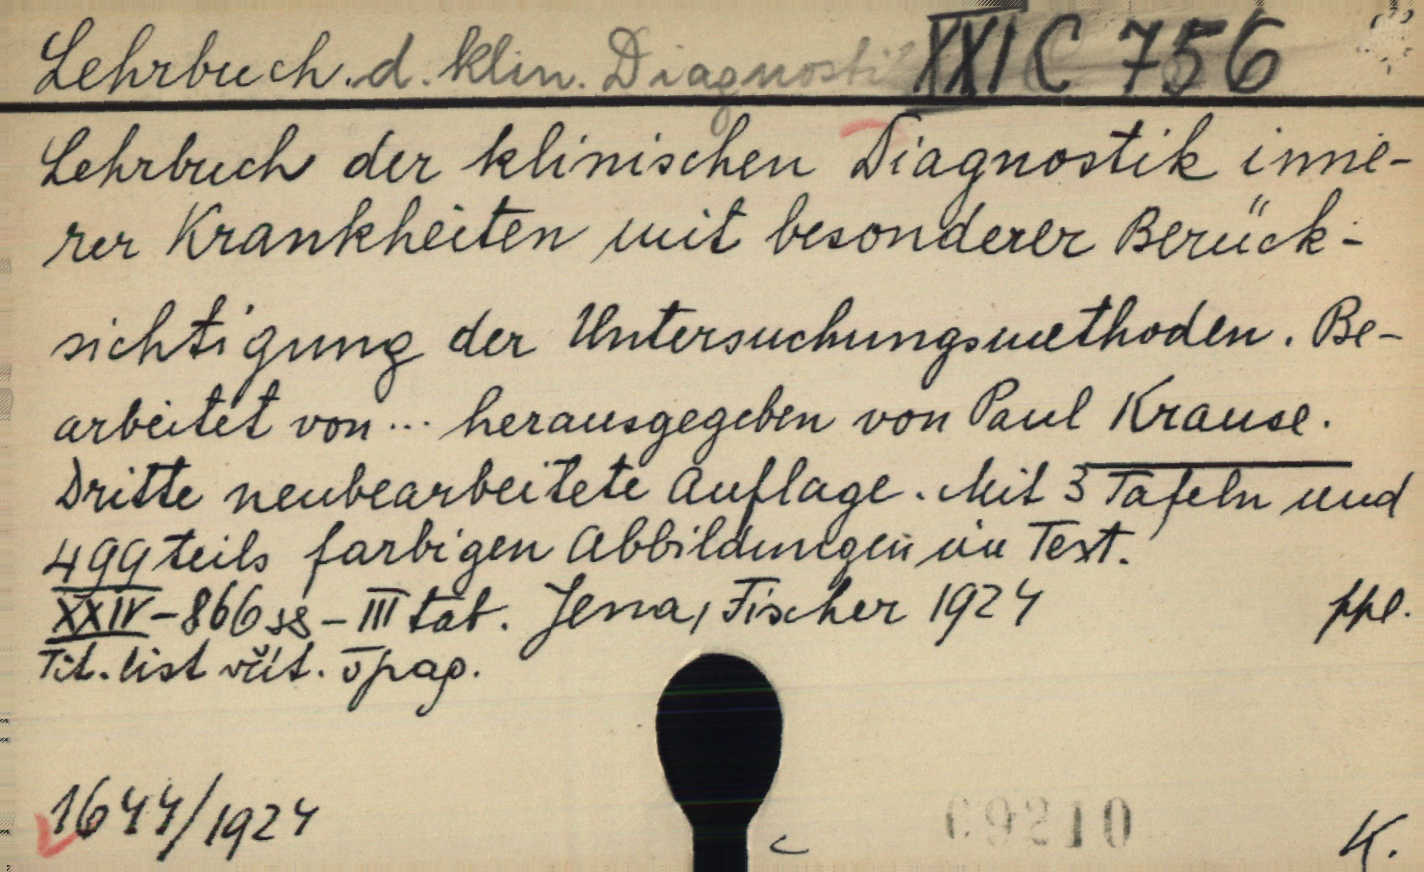 Lehrbuch. d. klin. Diagnostik XXI C 756
Lehrbuch der klinischen Diagnostik inne-
rer Krankheiten mit besonderer Berück-
sichtigung der Untersuchungsmethoden. Be-
arbeitet von... herausgegeben von Paul Krause.
Dritte neubearbeitete Auflage. Mit 3 Tafeln und
499 teils farbigen Abbildungen im Text.
XXIV-866 ss - III tab. Jena, Fischer 1924 ppl.
Tit. list včít. v pag.
1644/1924
69210
K.